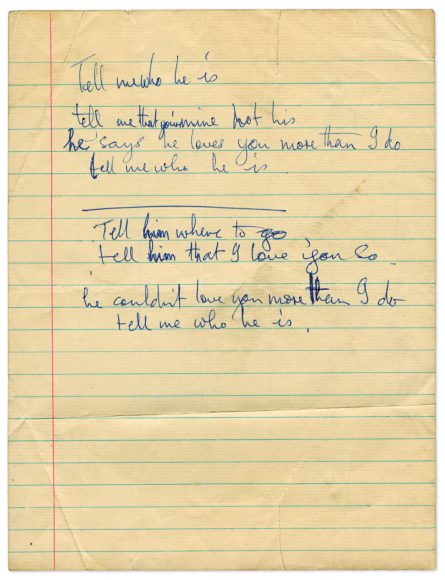 Tell me who he is
tell me that you're mine not his
he says he loves you more than I do
tell me who he is
Tell him where to go
tell him that I love you so.
he couldn't love you more than I do
tell me who he is.